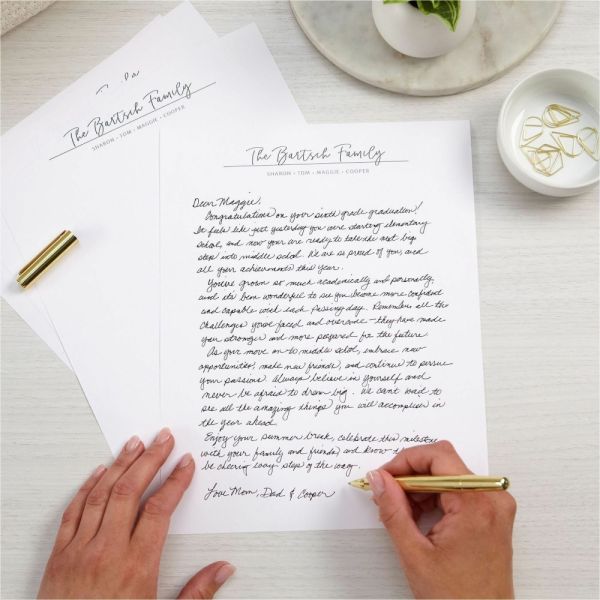 The Bartsch Family
SHARON • TOM • MAGGIE • COOPER
The Bartsch Family
SHARON • TOM • MAGGIE • COOPER
Dear Maggie,
Congratulations on your sixth grade graduation!
It feels like just yesterday you were starting elementary
school, and now your are ready to take the next big
step into middle school. We are so proud of you, and
all your achievements this year.
You've grown so much academically and personally
and it's been wonderful to see you become more confident
and capable with each passing day. Remember all the
challenges you've faced and overcome - they have made
you stronger and more prepared for the future
As your move on to middle school, embrace new
opportunities, make new friends, and continue to pursue
your passions. Always believe in yourself and
never be afraid to dream big. We can't wait to
see all the amazing things you will accomplish in
the year ahead.
Enjoy your summer break, celebrate this milestone
with your family and friends, and know
be cheering every step of the way.
Love Mom, Dad & Cooper